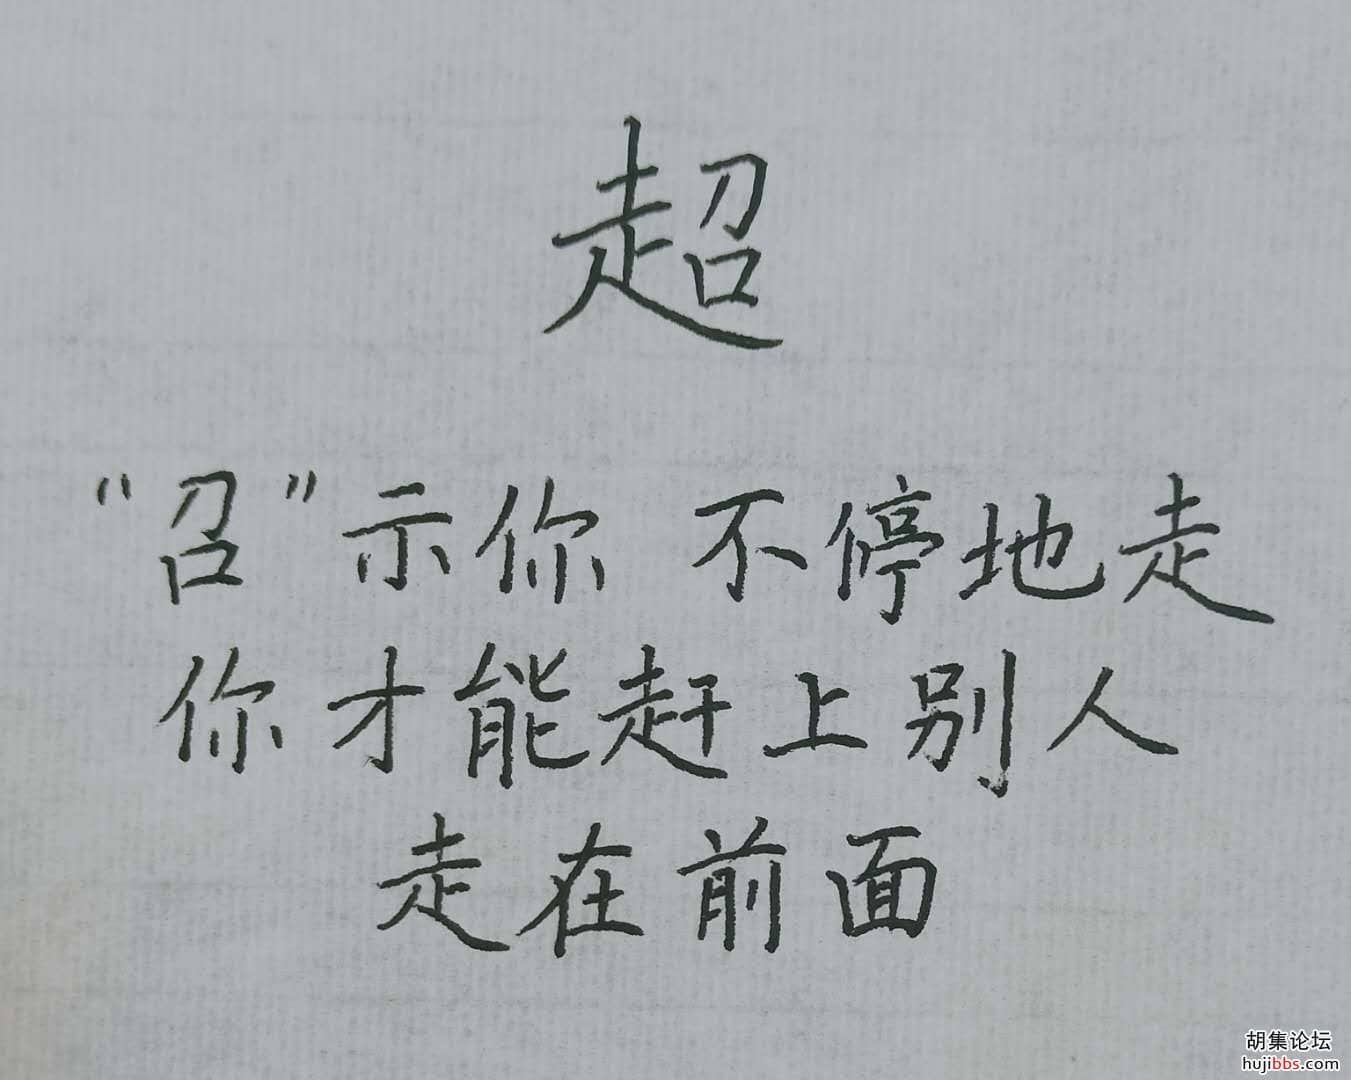 超
“召”示你 不停地走
你才能赶上别人
走在前面
胡集论坛
hujibbs.com